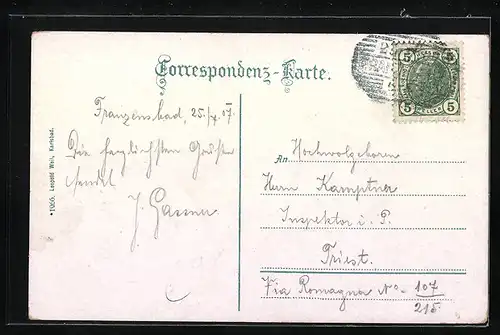 Correspondenz-Karte.
Franzensbad, 25./X. 07.
Die herzlichsten Grüße
sendet
J. Gassner
An Hochwolgeboren
Herrn Kamptner
Inspektor i. P.
Triest.
Via Romagna No. 107/215
*1066. Leopold Weil, Karlsbad.
5 5
5 5